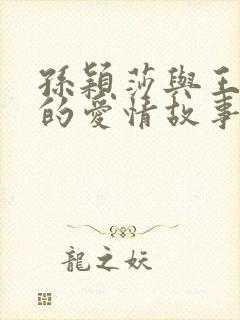 孫穎莎與王
的愛情故事
龍之妖